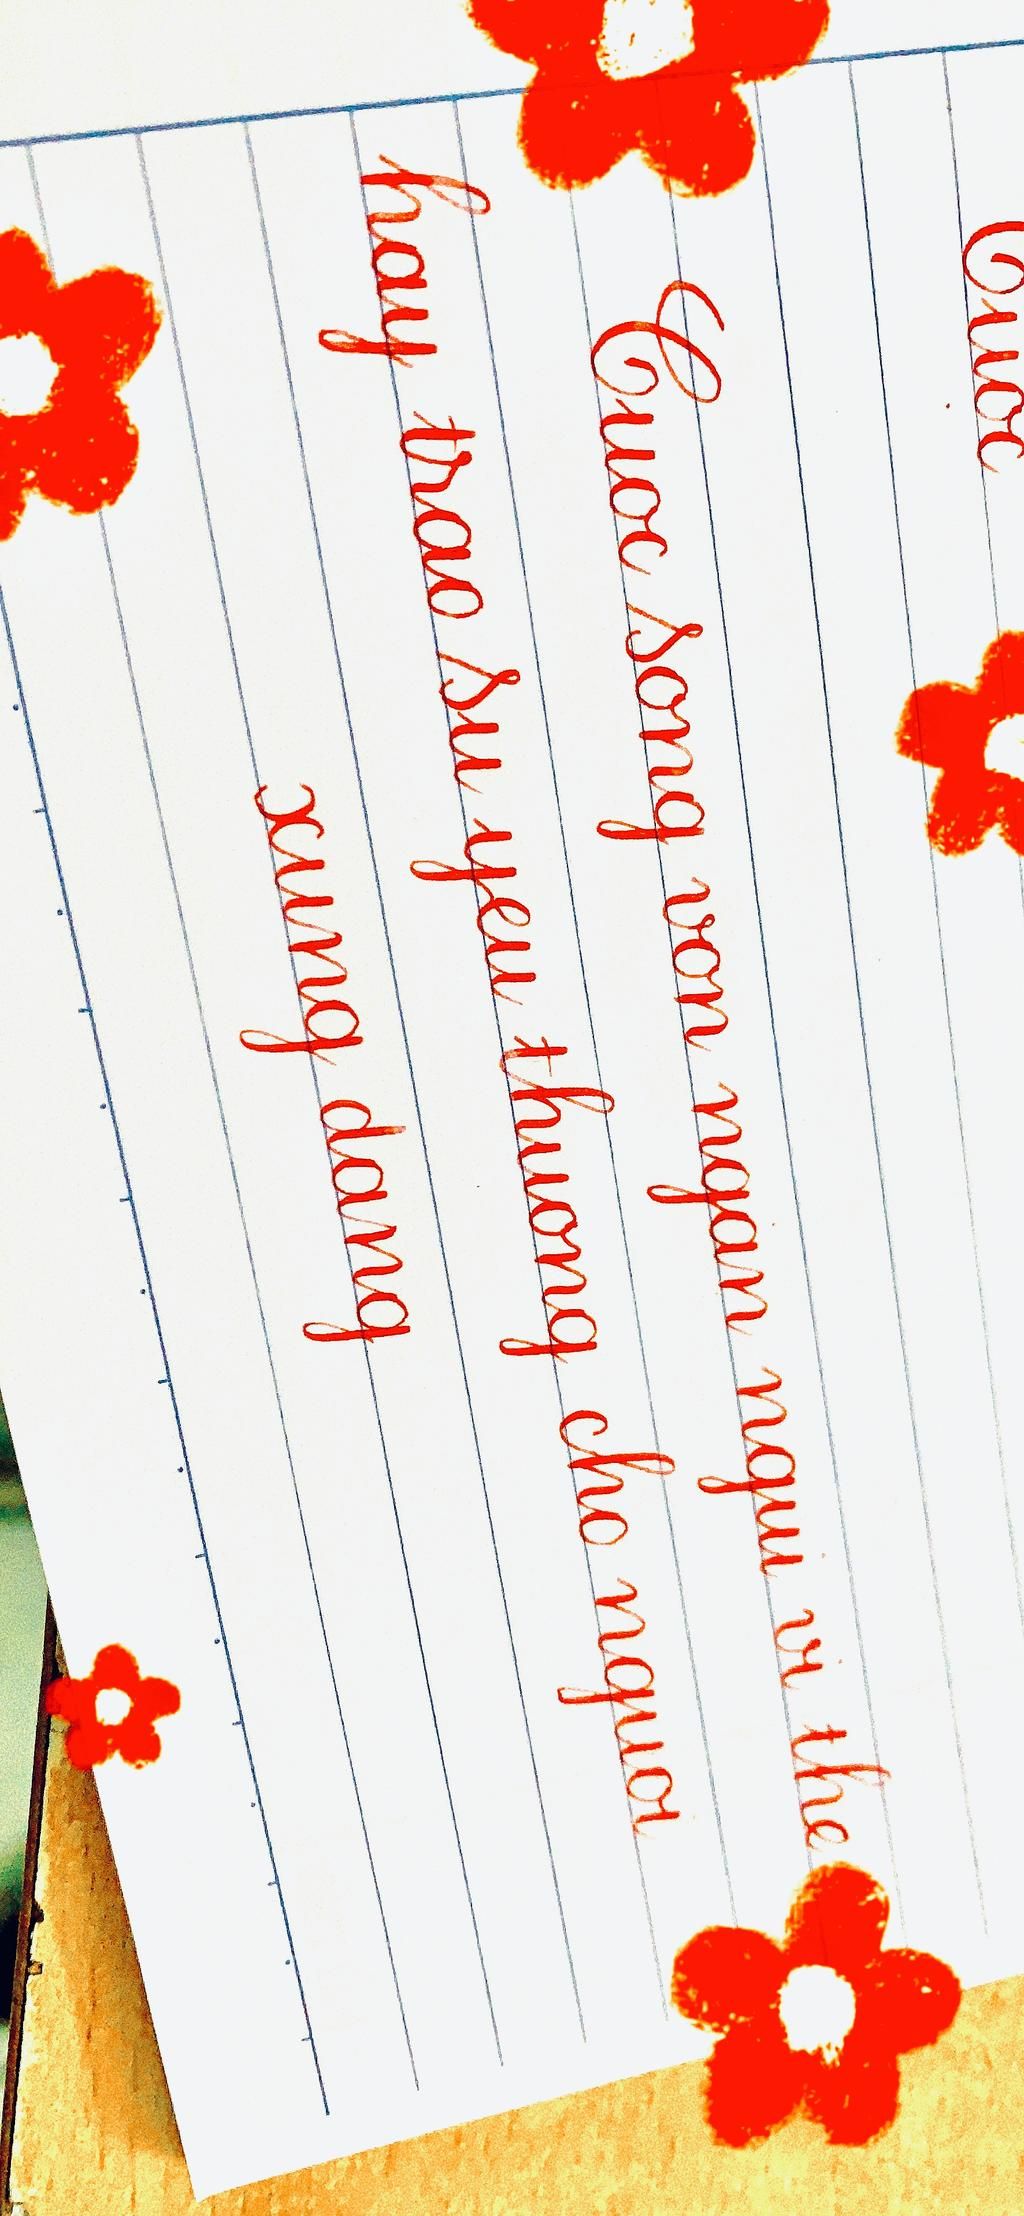 Cuoc
Cuoc song von ngan ngui vi the
hay trao su yeu thuong cho nguoi
xung dang